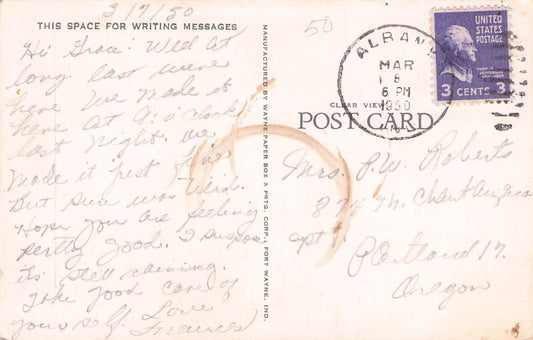 3/7/50
THIS SPACE FOR WRITING MESSAGES
Hi Grace: Well at
long last were
here we made it
here at 9: o'clock
last night. we
made it just fine
but sure was tired.
Hope you are feeling
pretty good. I suspose
its still raining.
Take good care of
yourself. Love,
Frances
MANUFACTURED BY WAYNE PAPER BOX & PRTG. CORP., FORT WAYNE, IND.
50
ALBANY
MAR
8
6 PM
1950
UNITED
STATES
POSTAGE
THOMAS
JEFFERSON
3 CENTS 3
CLEAR VIEW
POST CARD
Mrs. P.W. Roberts
874 N.
apt 1.
Portland 17.
Oregon